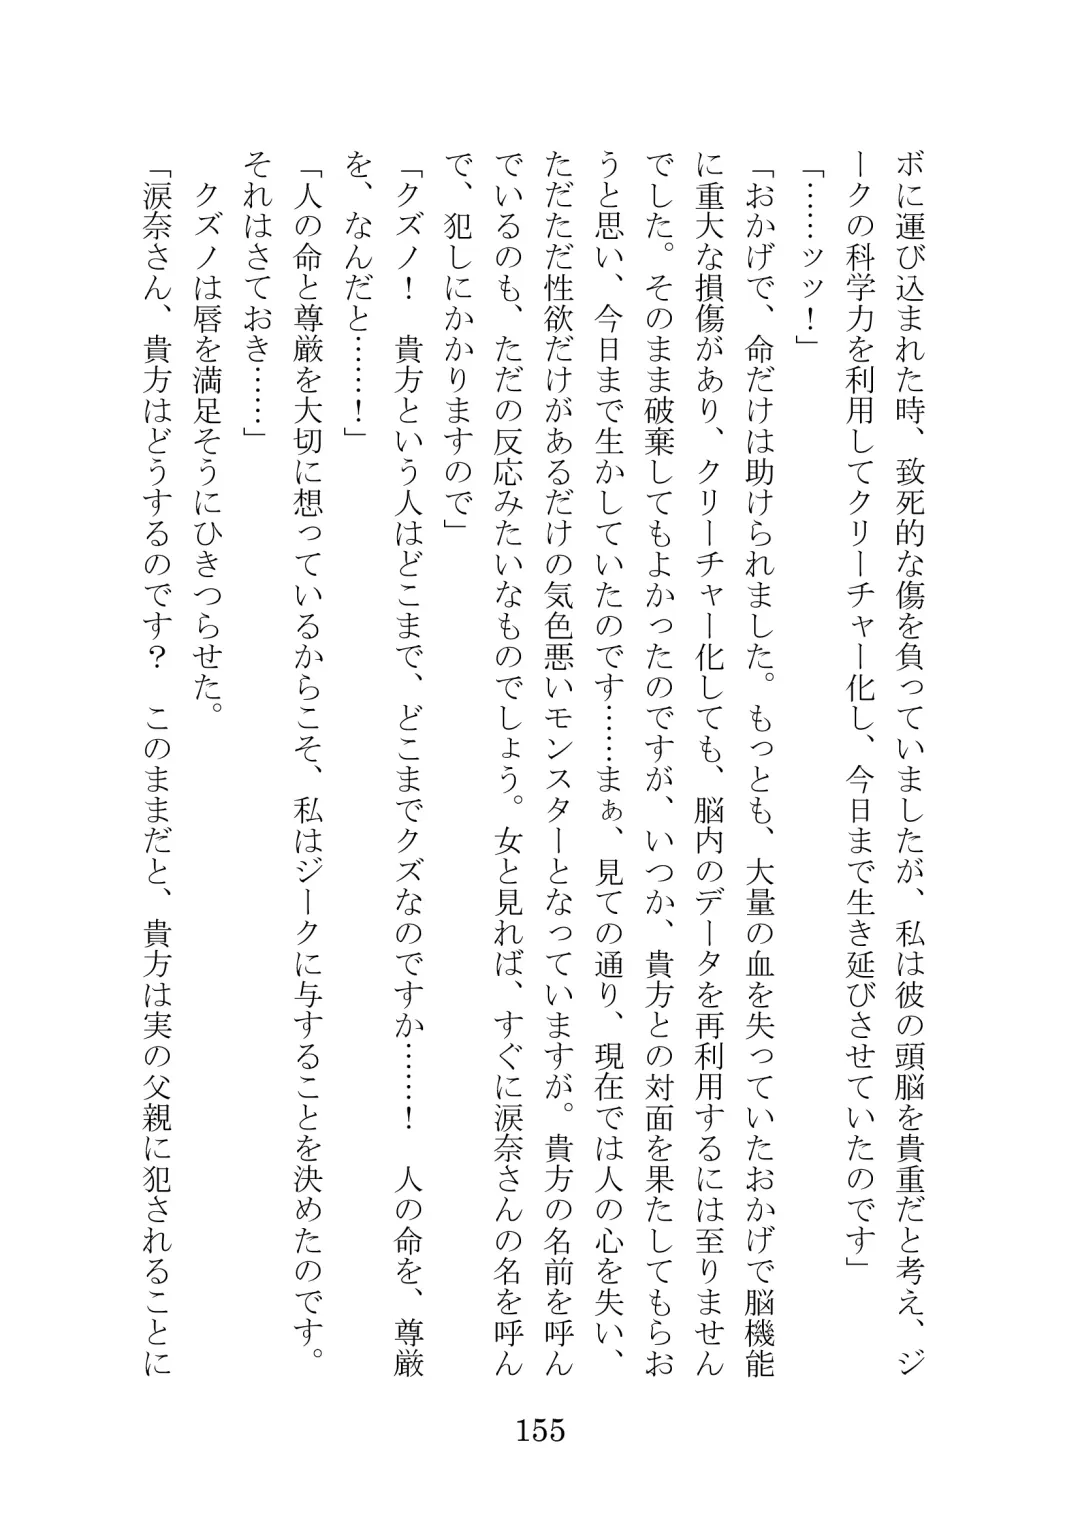 ボに運び込まれた時、致死的な傷を負っていましたが、私は彼の頭脳を貴重だと考え、ジ
ークの科学力を利用してクリーチャー化し、今日まで生き延びさせていたのです」
「……ッッ！」
「おかげで、命だけは助けられました。もっとも、大量の血を失っていたおかげで脳機能
に重大な損傷があり、クリーチャー化しても、脳内のデータを再利用するには至りません
でした。そのまま破棄してもよかったのですが、いつか、貴方との対面を果たしてもらお
うと思い、今日まで生かしていたのです……まぁ、見ての通り、現在では人の心を失い、
ただただ性欲だけがあるだけの気色悪いモンスターとなっていますが。貴方の名前を呼ん
でいるのも、ただの反応みたいなものでしょう。女と見れば、すぐに涙奈さんの名を呼ん
で、犯しにかかりますので」
「クズノ！　貴方という人はどこまで、どこまでクズなのですか……！　人の命を、尊厳
を、なんだと……！」
「人の命と尊厳を大切に想っているからこそ、私はジークに与することを決めたのです。
それはさておき……」
　クズノは唇を満足そうにひきつらせた。
「涙奈さん、貴方はどうするのです？　このままだと、貴方は実の父親に犯されることに
155